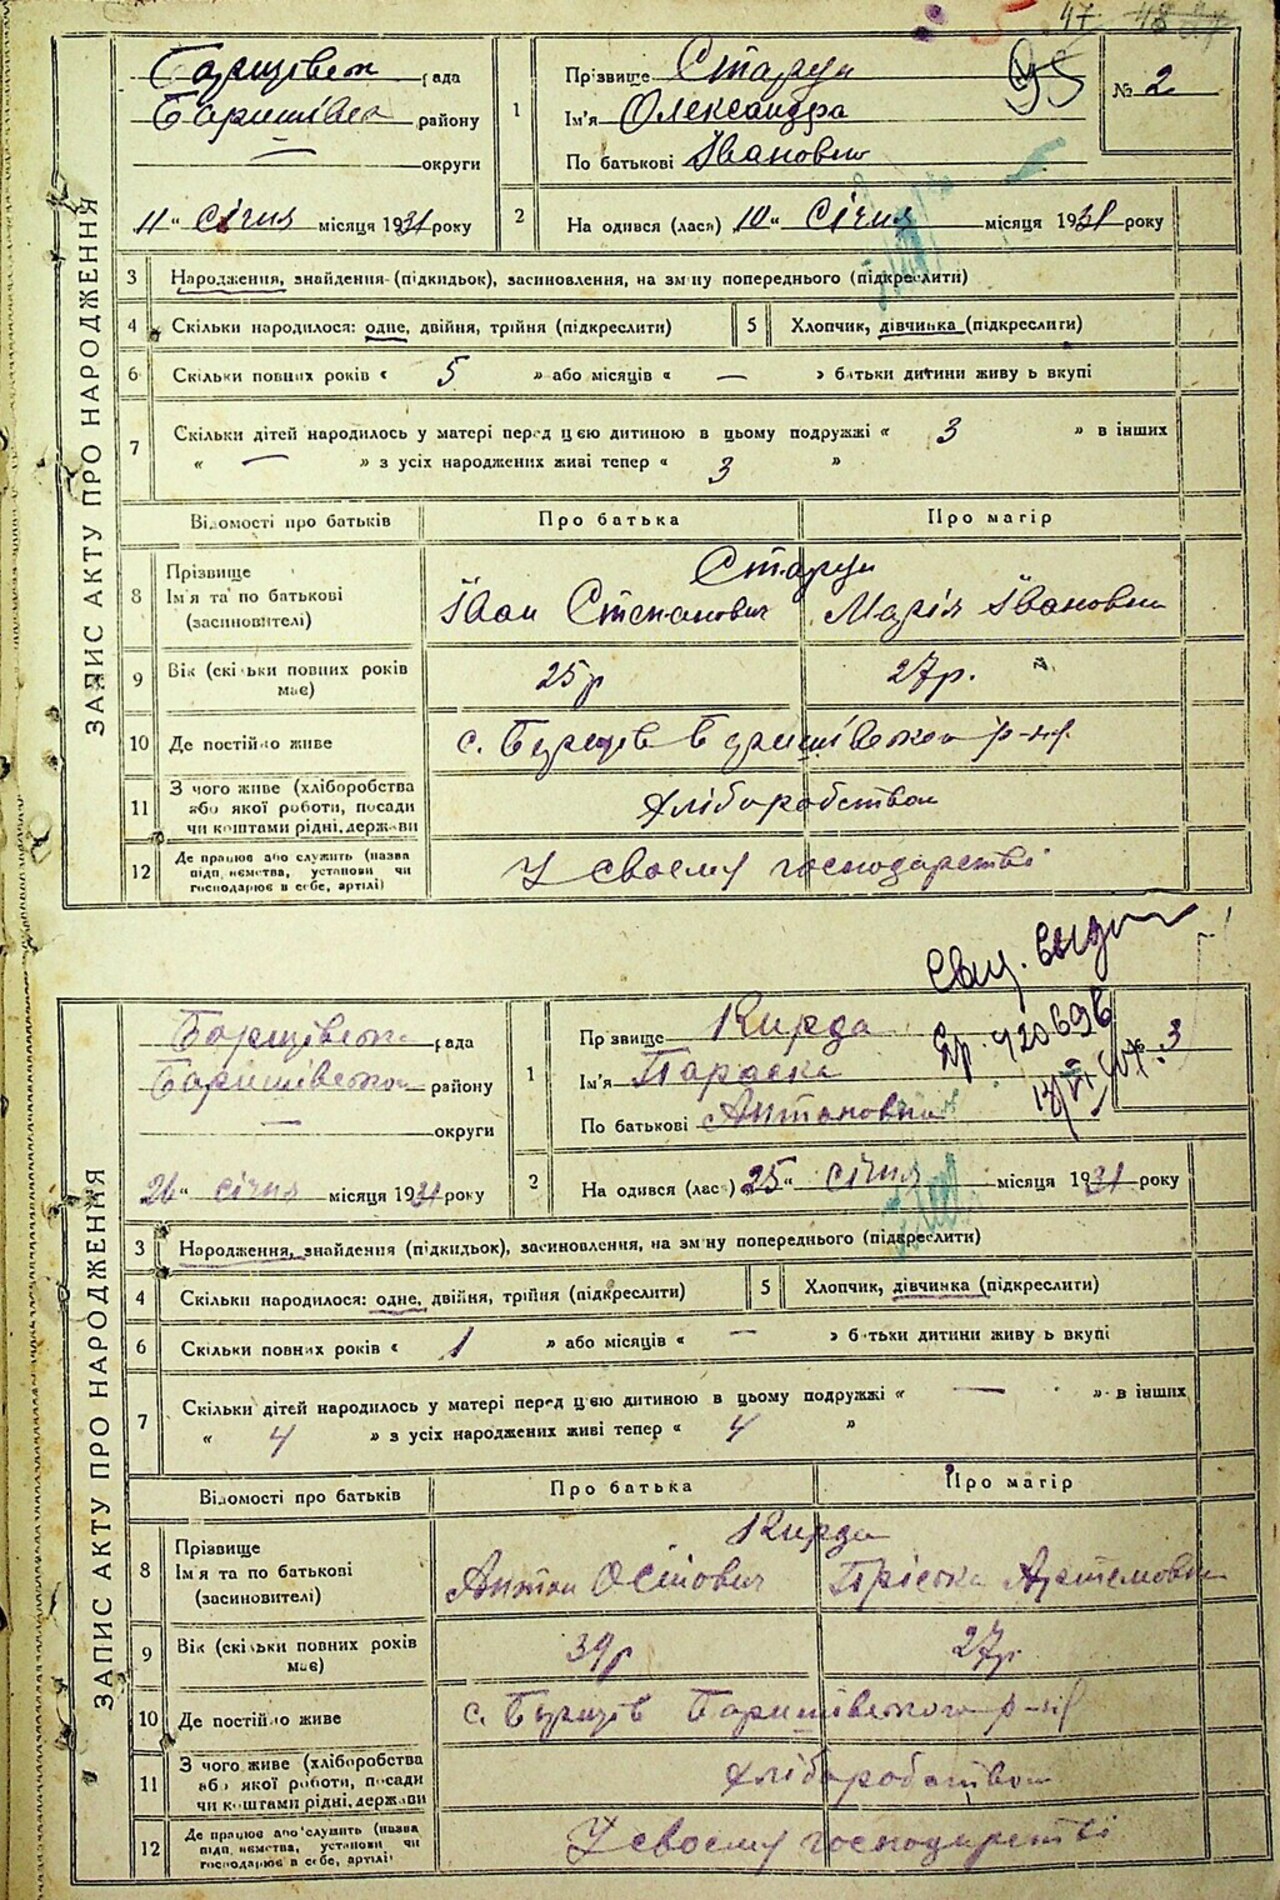 47 48
ЗАПИС АКТУ ПРО НАРОДЖЕННЯ
Борщівська рада
Баришівського району
— округи
11 " Січня місяця 1931 року
1 Прізвище Старун
Ім'я Олександра
По батькові Івановна
95
№ 2
2 На одився (лася) 10 " Січня місяця 1931 року
3 Народження, знайдення (підкидьок), засиновлення, на зміну попереднього (підкреслити)
4 Скільки народилося: одне, двійня, трійня (підкреслити) 5 Хлопчик, дівчинка (підкреслити)
6 Скільки повних років « 5 » або місяців « — » батьки дитини живуть вкупі
7 Скільки дітей народилось у матері перед цією дитиною в цьому подружжі « 3 » в інших
« — » з усіх народжених живі тепер « 3 »
Відомості про батьків Про батька Про матір
8 Прізвище
Ім'я та по батькові
(засиновителі)
Старун
Іван Степанович Марія Івановна
9 Вік (скільки повних років має) 25р 27р.
10 Де постійно живе с. Борщів Баришівського р-ну
11 З чого живе (хліборобства
або якої роботи, посади
чи коштами рідні, держави
Хліборобством
12 Де працює або служить (назва
підприємства, установи чи
господарює в себе, артілі)
У своєму господарстві
Свид. выдан
Яр. 420696
ЗАПИС АКТУ ПРО НАРОДЖЕННЯ
Борщівська рада
Баришівського району
— округи
26 " січня місяця 1931 року
1 Прізвище Кирда
Ім'я Параска
По батькові Антоновна
3
2 На одився (лася) 25 " січня місяця 1931 року
3 Народження, знайдення (підкидьок), засиновлення, на зміну попереднього (підкреслити)
4 Скільки народилося: одне, двійня, трійня (підкреслити) 5 Хлопчик, дівчинка (підкреслити)
6 Скільки повних років « 1 » або місяців « — » батьки дитини живуть вкупі
7 Скільки дітей народилось у матері перед цією дитиною в цьому подружжі « — » в інших
« 4 » з усіх народжених живі тепер « 4 »
Відомості про батьків Про батька Про матір
8 Прізвище
Ім'я та по батькові
(засиновителі)
Кирда
Антон Осипович Пріська Артемовна
9 Вік (скільки повних років має) 39р 27р.
10 Де постійно живе с. Борщів Баришівського р-ну
11 З чого живе (хліборобства
або якої роботи, посади
чи коштами рідні, держави
Хліборобством
12 Де працює або служить (назва
підприємства, установи чи
господарює в себе, артілі)
У своєму господарстві